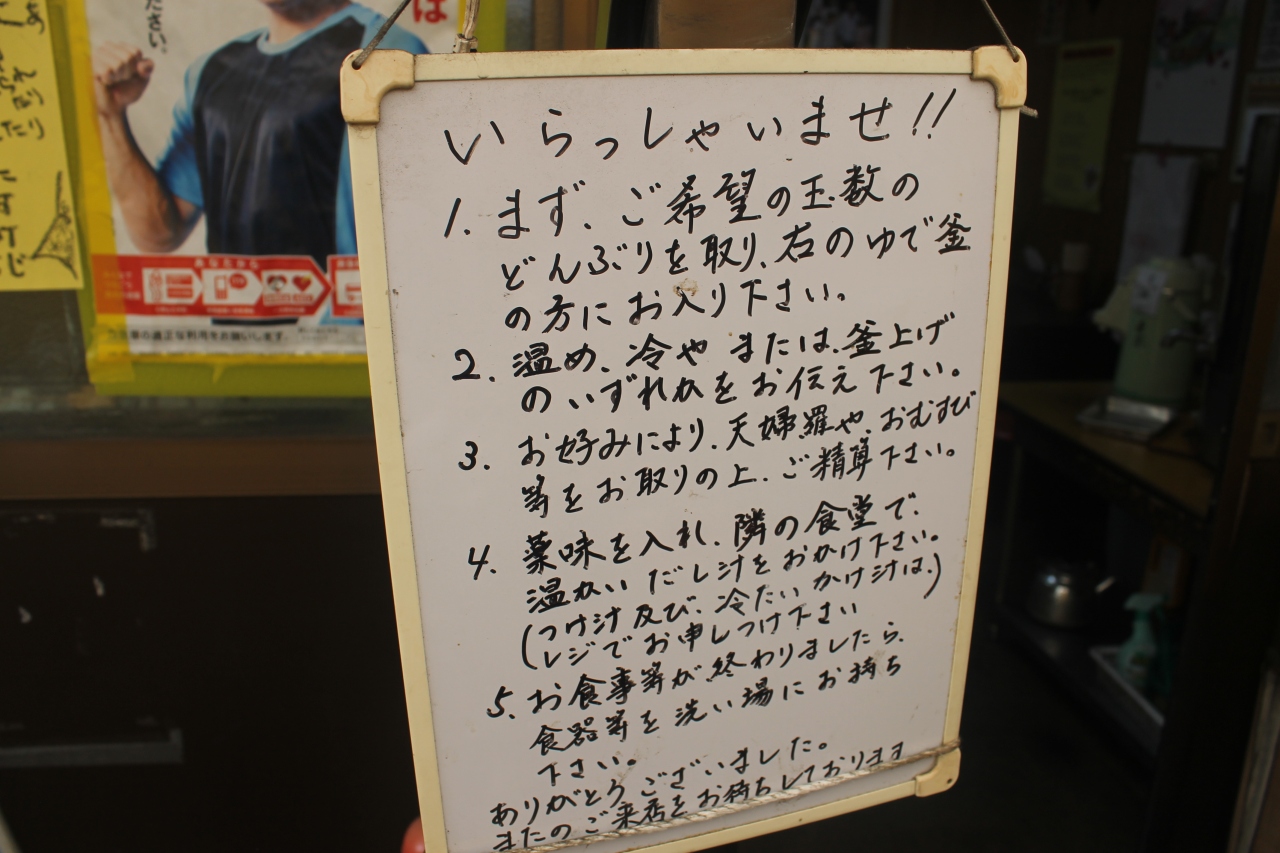 いらっしゃいませ!!
1. まず、ご希望の玉数の
どんぶりを取り、右のゆで釜
の方にお入り下さい。
2. 温め、冷や または、釜上げ
のいずれかをお伝え下さい。
3. お好みにより、天婦羅や、おむすび
等をお取りの上、ご精算下さい。
4. 薬味を入れ、隣の食堂で、
温かい だし汁をおかけ下さい。
(つけ汁及び、冷たいかけ汁は、)
(レジでお申しつけ下さい
5. お食事等が、終わりましたら、
食器等を洗い場にお持ち
下さい。
ありがとうございました。
またのご来店をお待ちしております
は
ださい。
あなたから
の適正な利用をお願いします。